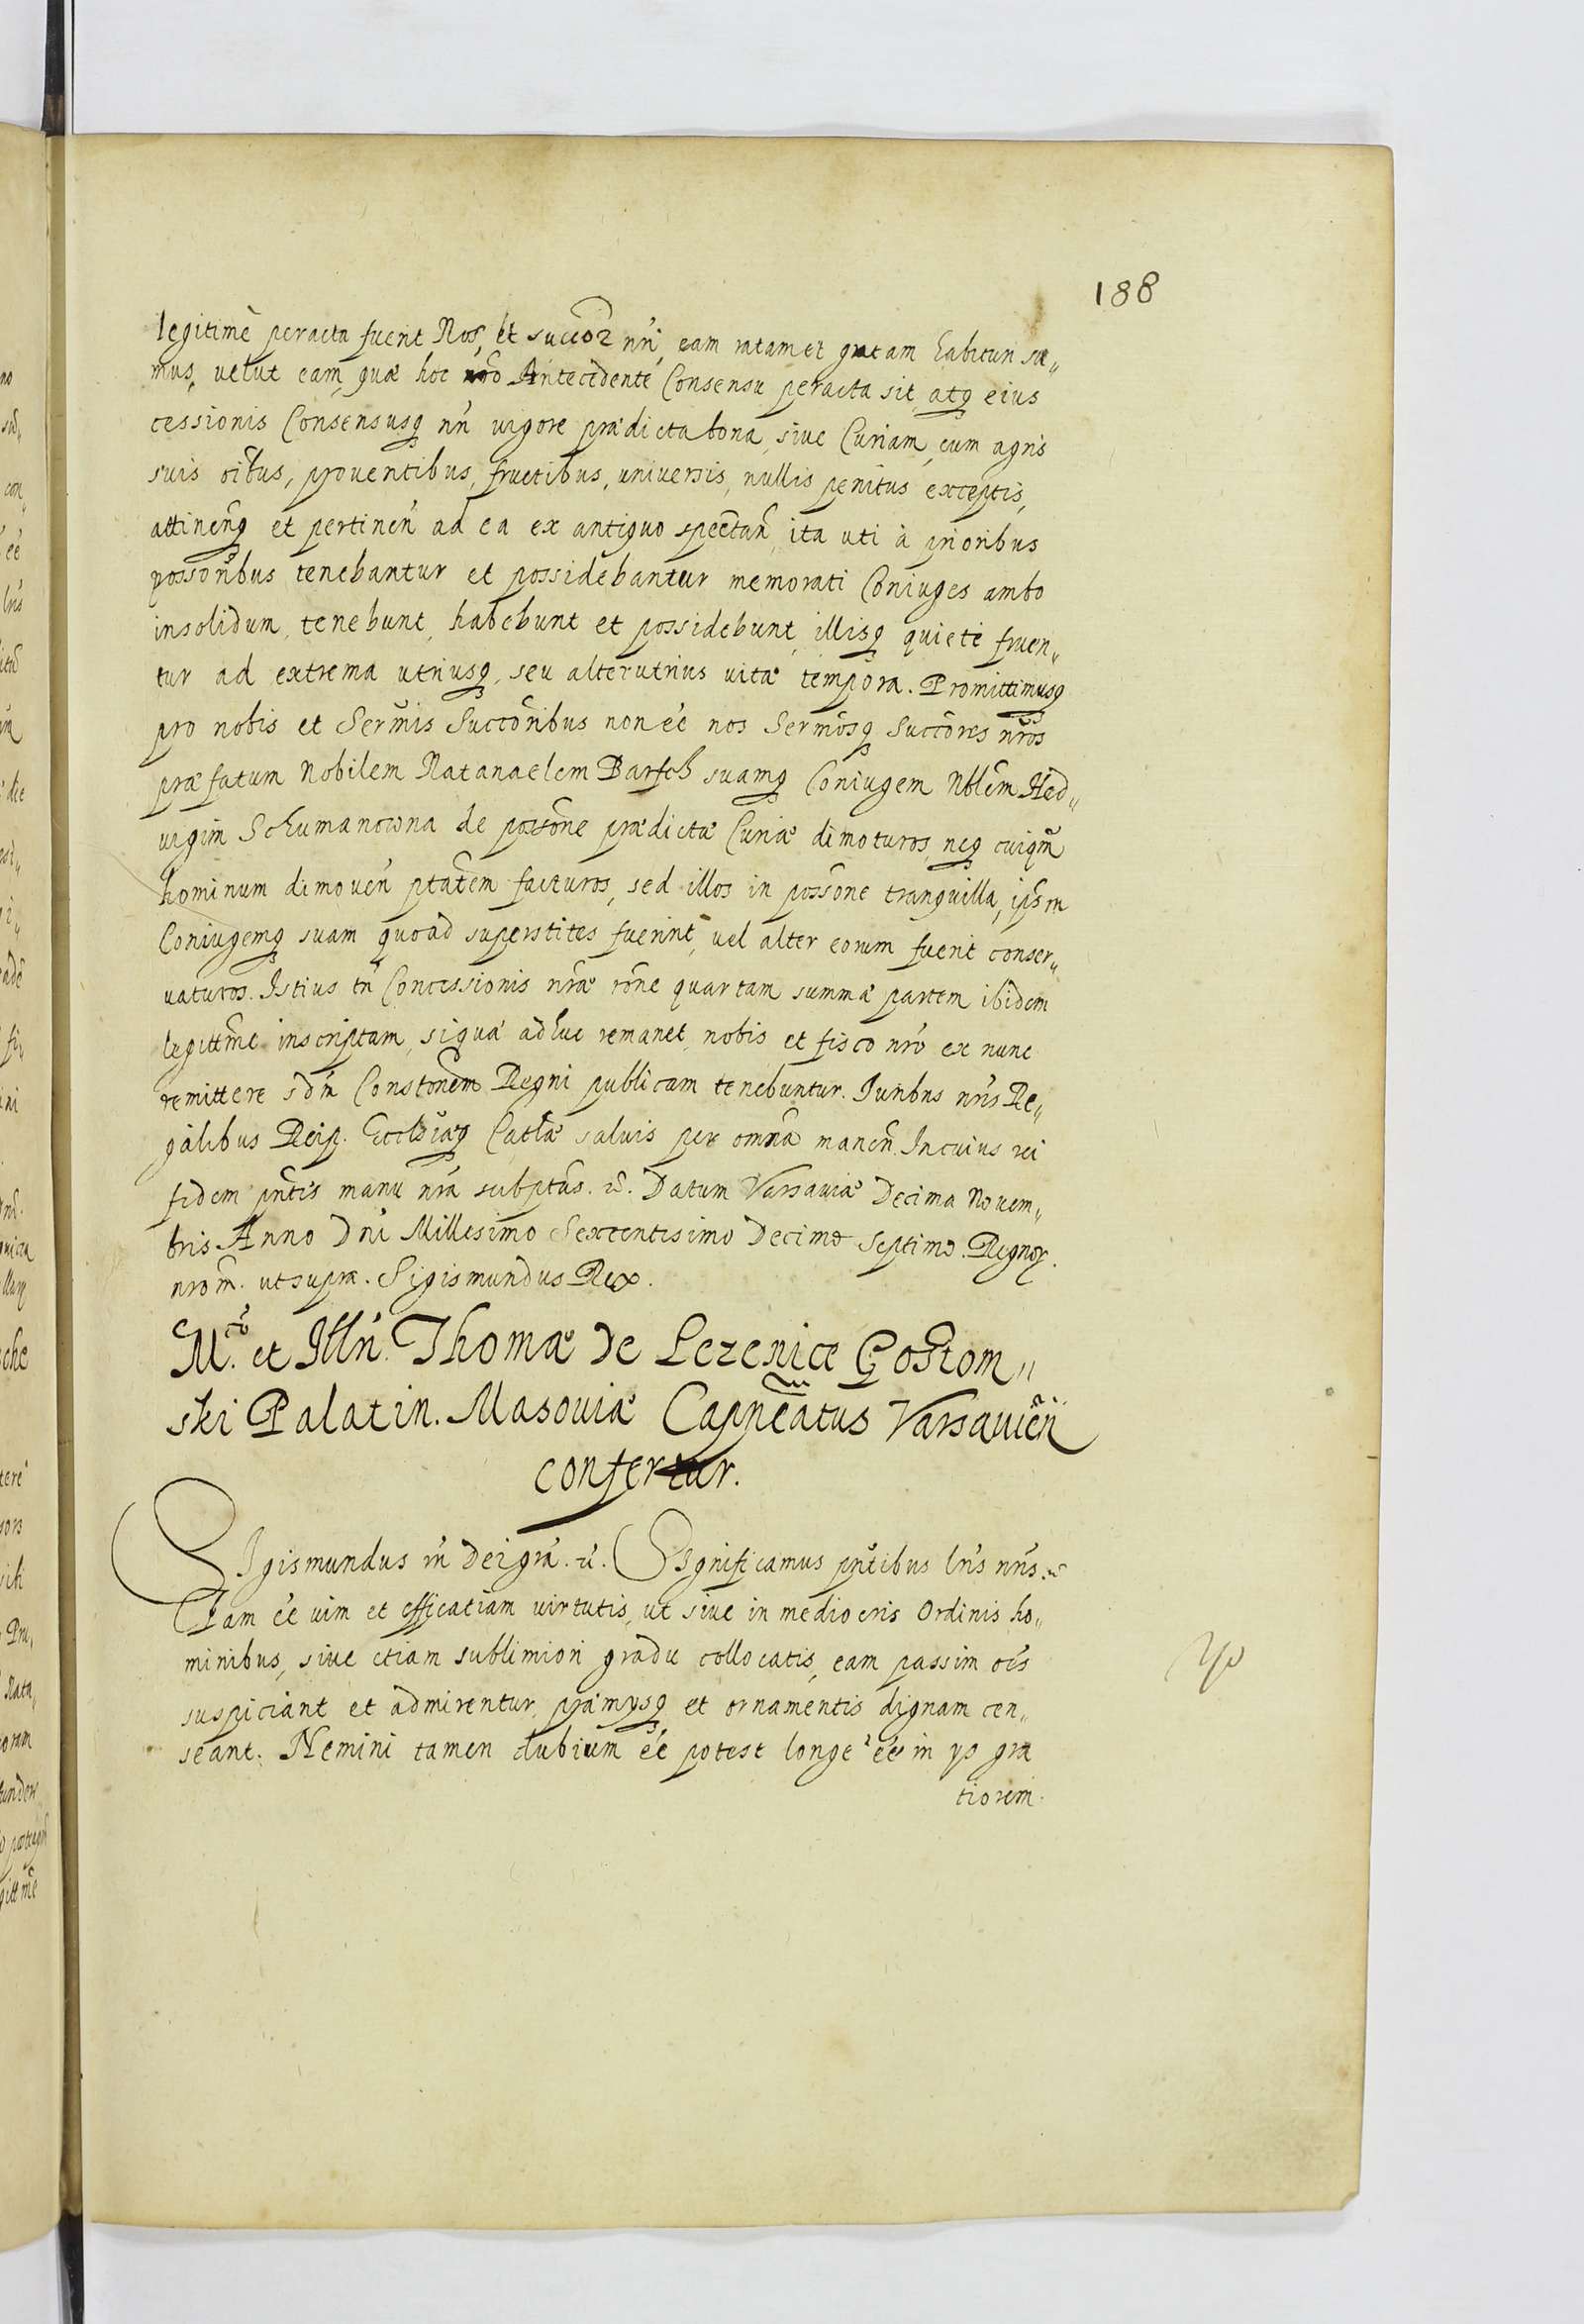 188
legitimè peracta fuerit Nos, et succór nri, eam ratam et gratam habituri su„
mus, velut eam, quæ hoc nro Antecedente Consensu peracta sit, atq eius
cessionis Consensusq nri vigore prædicta bona, siue Curiam, cum agris
suis oibus, prouentibus, fructibus, uniuersis, nullis penitus exceptis,
attinenq et pertinen ad ea ex antiquo spectan, ita uti à prioribus
possoribus tenebantur et possidebantur memorati Coniuges ambo
insolidum, tenebunt, habebunt et possidebunt, illisq quietè fruen„
tur ad extrema utriusq, seu alterutrius uitæ tempora. Promittimusq
pro nobis et Sermis Succoribus non ée nos Sermosq Succores nros
præfatum Nobilem Natanaelem Barsch suamq Coniugem Nblem Hed„
uigim Schumanowna de possone prædictæ Curiæ dimoturos, neq cuiqm
hominum dimouen ptatem facturos, sed illos in possone tranquilla, ipsm
Coniugemq suam quoad superstites fuerint, uel alter eorum fuerit conser„
uaturos. Istius tn Concessionis nræ rone quartam summæ partem ibidem
legittme inscriptam, siquæ adhuc remanet, nobis et fisco nro ex nunc
remittere sdm Constonem Regni publicam tenebuntur. Iuribus nris Re„
galibus Reip. Ecclsiæq Cathæ saluis per omnia manen. In cuius rei
fidem pntis manu nra subptas. etc. Datum Varsauiæ Decima Nouem„
bris Anno Dni Millesimo Sexcentesimo Decimo septimo. Regnor.
nrom. ut supra. Sigismundus Rex.
M.co et Illri. Thomæ de Lezenice Gostom„
ski Palatin. Masouiæ Capneatus Varsauien
confertur.
Sigismundus III Dei gra. etc. Significamus pntibus lris nris etc
Eam ée uim et efficatiam uirtutis, ut siue in mediocris Ordinis ho„
minibus, siue etiam sublimiori gradu collocatis, eam passim oés
suspiciant et admirentur, præmysq et ornamentis dignam cen„
seant. Nemini tamen dubium ée potest longe ée in ys gra
tiorem.
ys